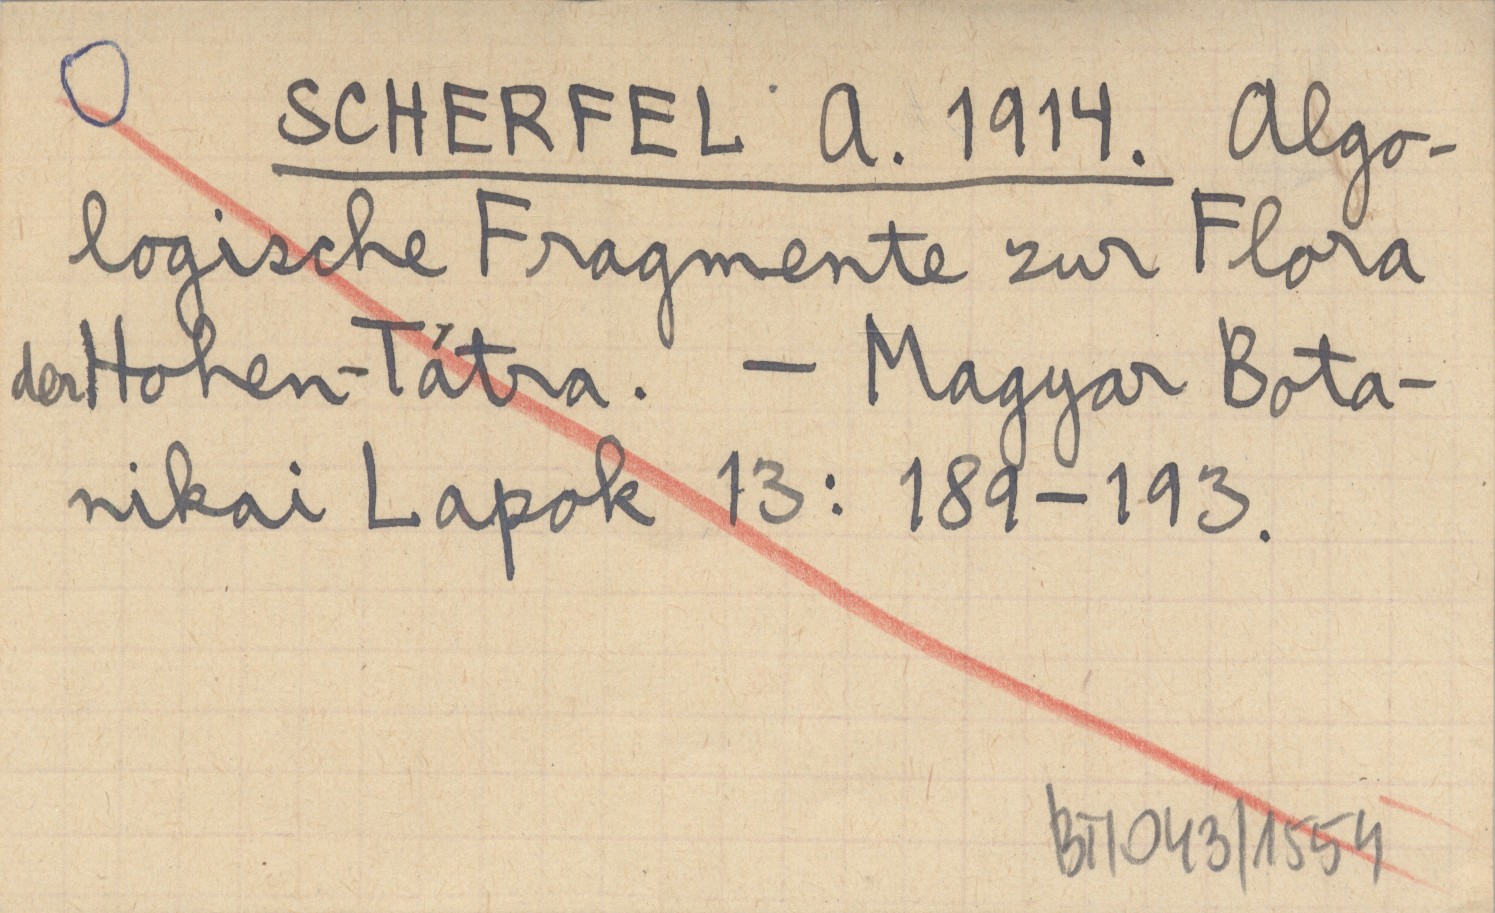 SCHERFEL A. 1914. Algo-
logische Fragmente zur Flora
der Hohen-Tátra. — Magyar Bota-
nikai Lapok 13: 189-193.
BT/043/1554